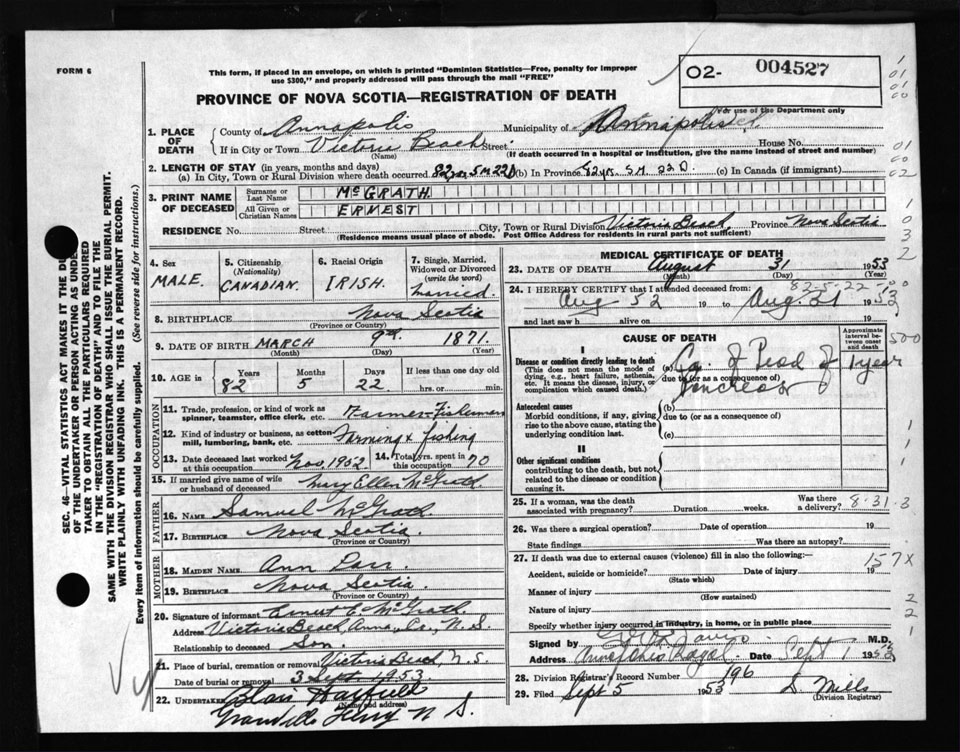 FORM 6
This form, if placed in an envelope, on which is printed "Dominion Statistics—Free, penalty for improper
use $300," and properly addressed will pass through the mail "FREE"
02- 004527
For use of the Department only
PROVINCE OF NOVA SCOTIA—REGISTRATION OF DEATH
1. PLACE OF DEATH
County of Annapolis Municipality of Annapolis
If in City or Town Victoria Beach Street House No.
(Name) (If death occurred in a hospital or institution, give the name instead of street and number)
2. LENGTH OF STAY (in years, months and days)
(a) In City, Town or Rural Division where death occurred 82 yrs 5 M 22 D (b) In Province 82 yrs. 5 M. 22 D. (c) In Canada (if immigrant)
3. PRINT NAME OF DECEASED
Surname or Last Name McGRATH
All Given or Christian Names ERNEST
RESIDENCE No. Street City, Town or Rural Division Victoria Beach, Province Nova Scotia
(Residence means usual place of abode. Post Office Address for residents in rural parts not sufficient)
4. Sex MALE.
5. Citizenship (Nationality) CANADIAN.
6. Racial Origin IRISH.
7. Single, Married, Widowed or Divorced (write the word) Married.
8. BIRTHPLACE Nova Scotia
(Province or Country)
9. DATE OF BIRTH MARCH 9th. 1871.
(Month) (Day) (Year)
10. AGE in Years Months Days If less than one day old
82 5 22 hrs. or min.
OCCUPATION
11. Trade, profession, or kind of work as spinner, teamster, office clerk, etc. Farmer-Fisherman
12. Kind of industry or business, as cotton mill, lumbering, bank, etc. Farming & fishing
13. Date deceased last worked at this occupation Nov 1952 14. Total yrs. spent in this occupation 70
15. If married give name of wife or husband of deceased Mary Ellen McGrath
FATHER
16. NAME Samuel McGrath.
17. BIRTHPLACE Nova Scotia
(Province or Country)
MOTHER
18. MAIDEN NAME Ann
19. BIRTHPLACE Nova Scotia.
(Province or Country)
20. Signature of informant Ernest E McGrath
Address Victoria Beach, Anna. Co., N. S.
Relationship to deceased Son.
21. Place of burial, cremation or removal Victoria Beach, N. S.
Date of burial or removal 3 Sept. 1953
22. UNDERTAKER Blair Hatfield
(Name and address)
Granville Ferry N S.
MEDICAL CERTIFICATE OF DEATH
23. DATE OF DEATH August 31 1953
(Month) (Day) (Year)
82-5-22
24. I HEREBY CERTIFY that I attended deceased from:
Aug 52 19 to Aug. 31 1953
and last saw h alive on 19
CAUSE OF DEATH
Approximate interval between onset and death
I
Disease or condition directly leading to death
(This does not mean the mode of dying, e.g., heart failure, asthenia, etc. It means the disease, injury, or complication which caused death.)
(a) Ca. of Head of 1 year
due to (or as a consequence of)
Pancreas
Antecedent causes
Morbid conditions, if any, giving rise to the above cause, stating the underlying condition last.
(b)
due to (or as a consequence of)
(c)
II
Other significant conditions
contributing to the death, but not related to the disease or condition causing it.
25. If a woman, was the death associated with pregnancy? Duration weeks. Was there a delivery?
8-31-3
26. Was there a surgical operation? Date of operation 19
State findings Was there an autopsy?
27. If death was due to external causes (violence) fill in also the following:—
157X
Accident, suicide or homicide? Date of injury 19
(State which)
Manner of injury
(How sustained)
Nature of injury
Specify whether injury occurred in industry, in home, or in public place
Signed by M.D.
Address Annapolis Royal. Date Sept 1 1953
28. Division Registrar's Record Number 196
29. Filed Sept 5 1953 S. Mills
(Division Registrar)
SEC. 46—VITAL STATISTICS ACT MAKES IT THE DU
OF THE UNDERTAKER OR PERSON ACTING AS UNDER
TAKER TO OBTAIN ALL THE PARTICULARS REQUIRED
IN THE "REGISTRATION OF DEATH" AND TO FILE THE
SAME WITH THE DIVISION REGISTRAR WHO SHALL ISSUE THE BURIAL PERMIT.
WRITE PLAINLY WITH UNFADING INK. THIS IS A PERMANENT RECORD.
Every item of information should be carefully supplied. (See reverse side for instructions.)